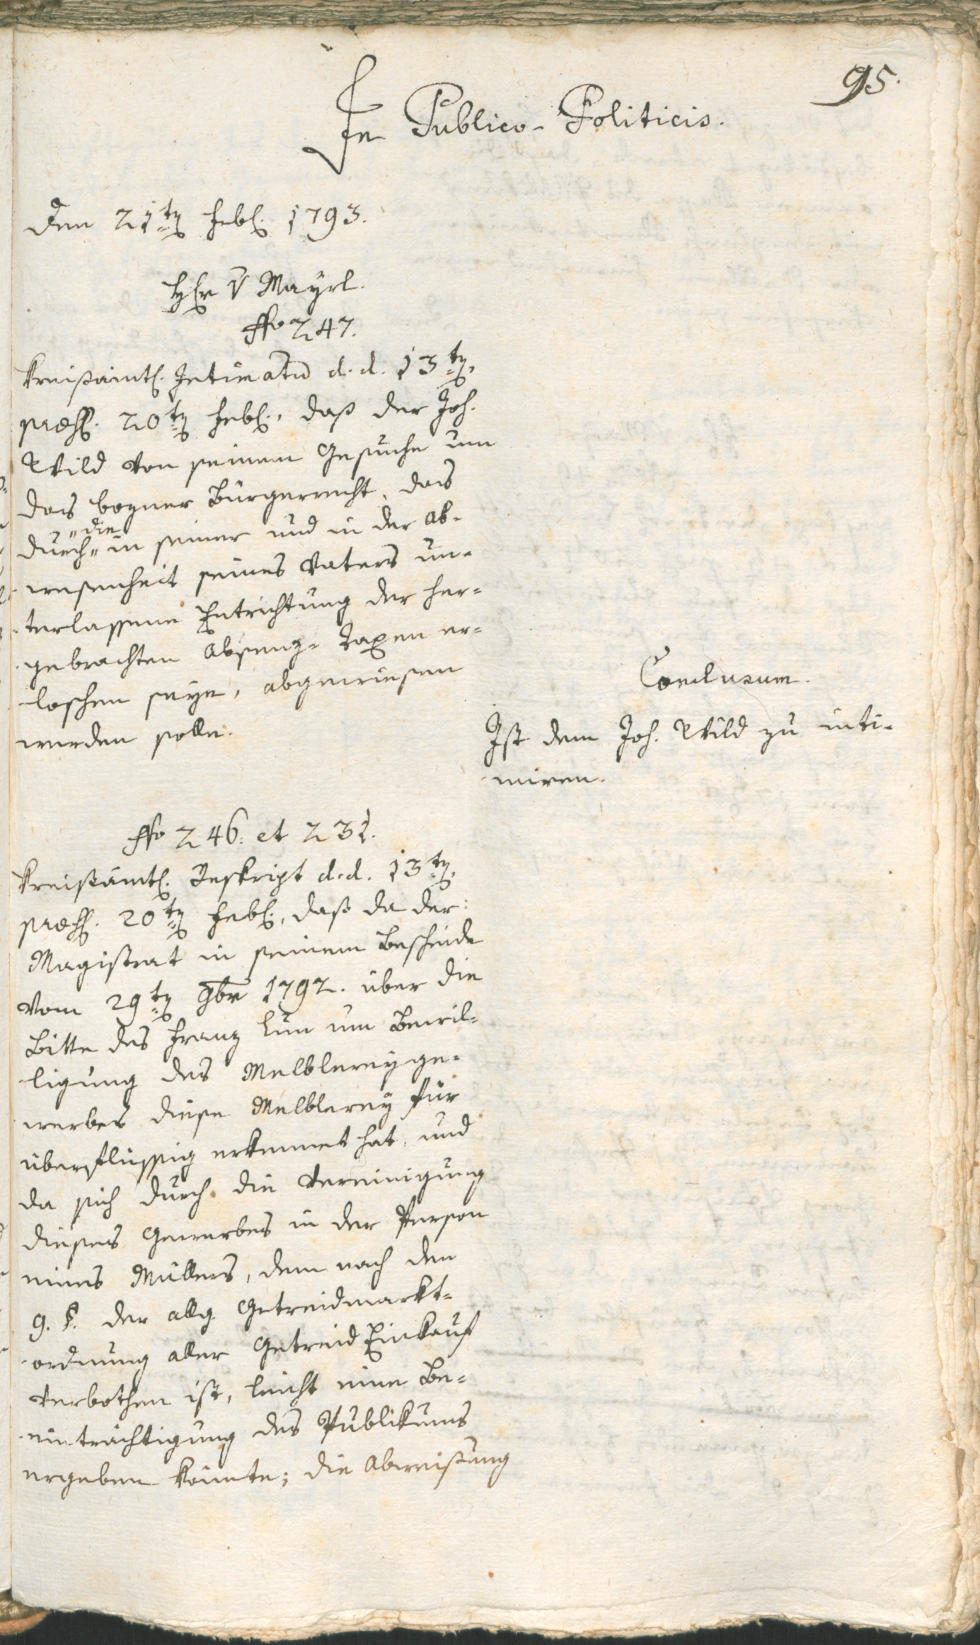 95.
In Publico-Politicis.
Den 21ten Febr. 1793.
Hr v Mayrl.
No 247.
Kreisämtl. Intimatum d. d. 13ten,
præs. 20ten Febr., daß der Joh.
Wild von seinem Gesuche um
das bozner Bürgerrecht, das
durch "die" in seiner und in der Ab-
wesenheit seines Vaters un-
terlassene Entrichtung der her-
gebrachten Absenz-Taxen er-
loschen seye, abgewiesen
werden solle.
Conclusum.
Ist dem Joh. Wild zu inti-
miren.
No 246. et 231.
Kreisämtl. Reskript d. d. 13ten,
præs. 20ten Febr., daß da der
Magistrat in seinem Bescheide
vom 29ten 9br 1792. über die
Bitte des Franz Lun um Bewil-
ligung des Melblereyge-
werbes diese Melblerey für
überflüssig erkennet hat, und
da sich durch die Vereinigung
dieses Gewerbes in der Person
eines Müllers, dem nach dem
9. §. der allg Getreidmarkt-
ordnung aller Getreid Einkauf
verbothen ist, leicht eine Be-
einträchtigung des Publikums
ergeben könnte; die Abweisung